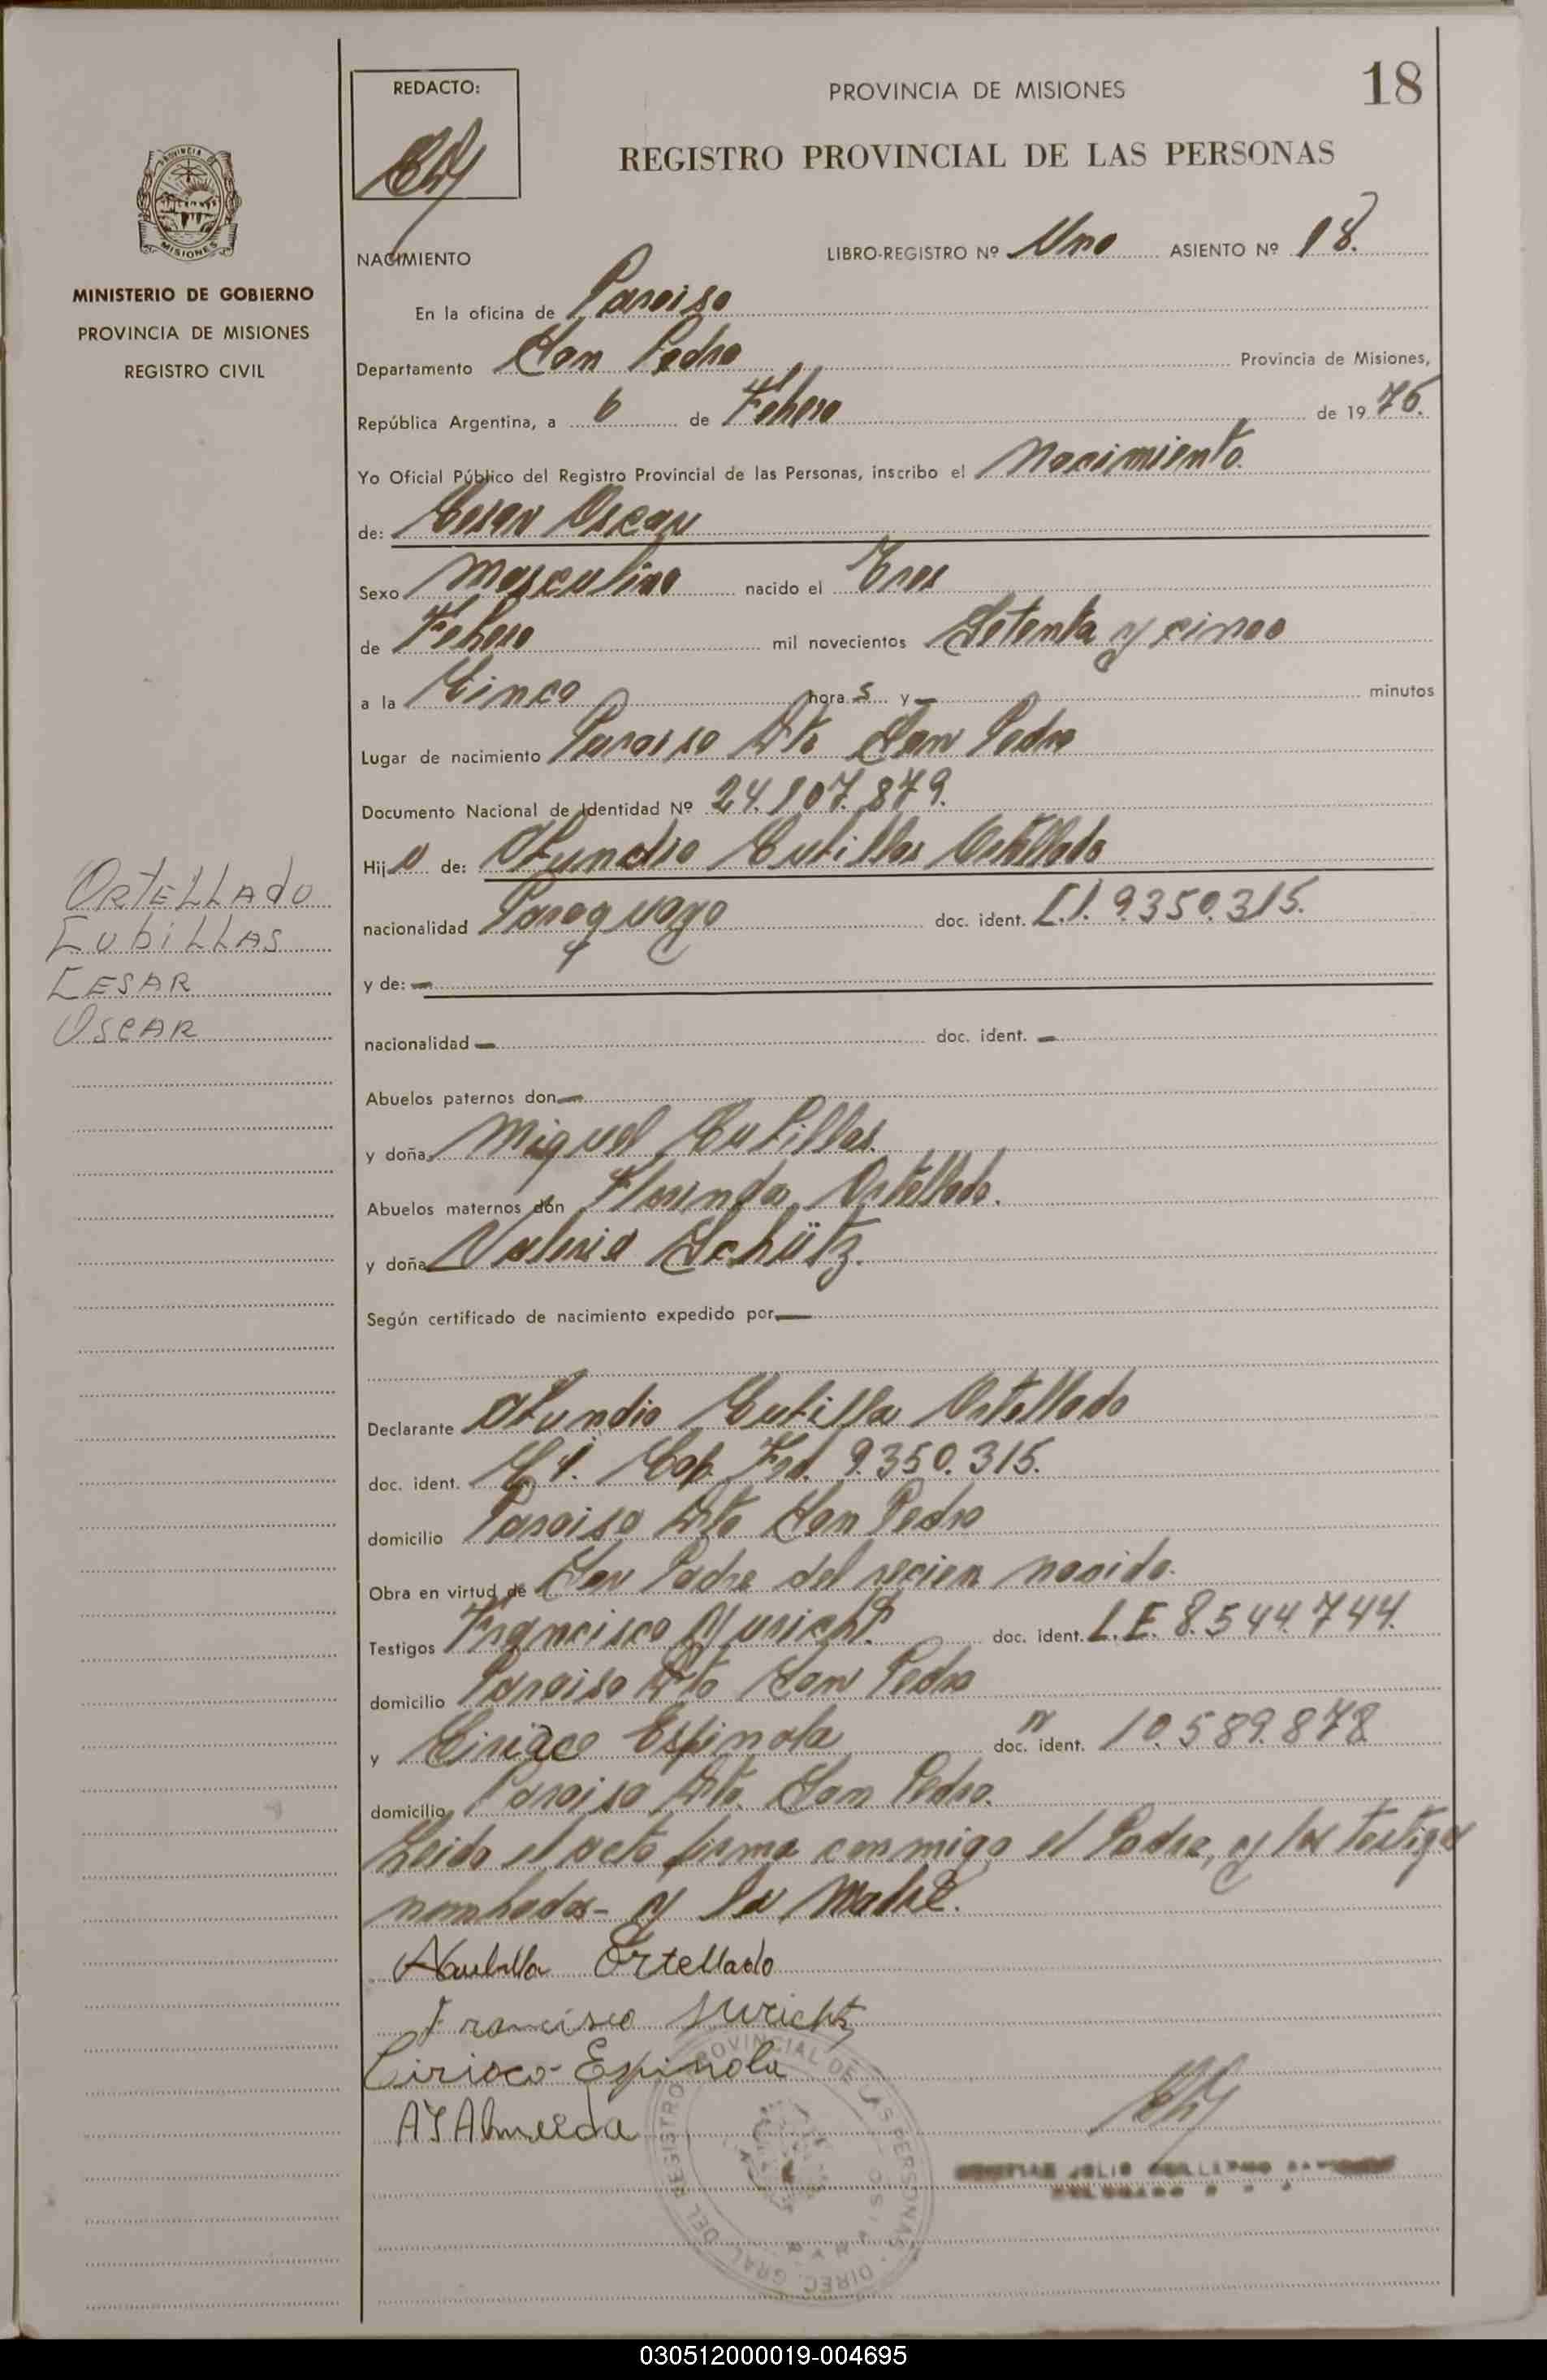 REDACTO:
PROVINCIA DE MISIONES
18
REGISTRO PROVINCIAL DE LAS PERSONAS
PROVINCIA DE
MISIONES
MINISTERIO DE GOBIERNO
PROVINCIA DE MISIONES
REGISTRO CIVIL
NACIMIENTO
LIBRO-REGISTRO Nº Uno ASIENTO Nº 18.
En la oficina de Paraiso
Departamento San Pedro Provincia de Misiones,
República Argentina, a 6 de Febrero de 1976.
Yo Oficial Público del Registro Provincial de las Personas, inscribo el Nacimiento.
de: Cesar Oscar
Sexo masculino nacido el Tres
de Febrero mil novecientos Setenta y cinco
a la Cinco hora s y —
minutos
Lugar de nacimiento Paraiso Dto San Pedro
Documento Nacional de Identidad Nº 24.107.879.
Hij o de: Abundio Cubillas Ortellado
nacionalidad Paraguayo doc. ident. C.I. 9.350.315.
y de: —
nacionalidad — doc. ident. —
Abuelos paternos don —
y doña Miguel Cubillas.
Abuelos maternos don Florinda Ortellado.
y doña Valeria Schütz.
Según certificado de nacimiento expedido por —
Declarante Abundio Cubilla Ortellado
doc. ident. C.I. Cap. Fed. 9.350.315.
domicilio Paraiso Dto San Pedro
Obra en virtud de Ser Padre del recien nacido.
Testigos Francisco doc. ident. L.E. 8.544.744.
domicilio Paraiso Dto San Pedro
y Ciriaco Espinola doc. ident. 10.589.878
domicilio Paraiso Dto. San Pedro.
Leido el acta firma conmigo el Padre, y los testigos
nombrados - y la Madre.
Ortellado
Francisco
Ciriaco Espinola
A Almeida
ORTELLADO
CUBILLAS
CESAR
OSCAR
DIREC. GRAL. DEL REGISTRO PROVINCIAL DE LAS PERSONAS
030512000019-004695